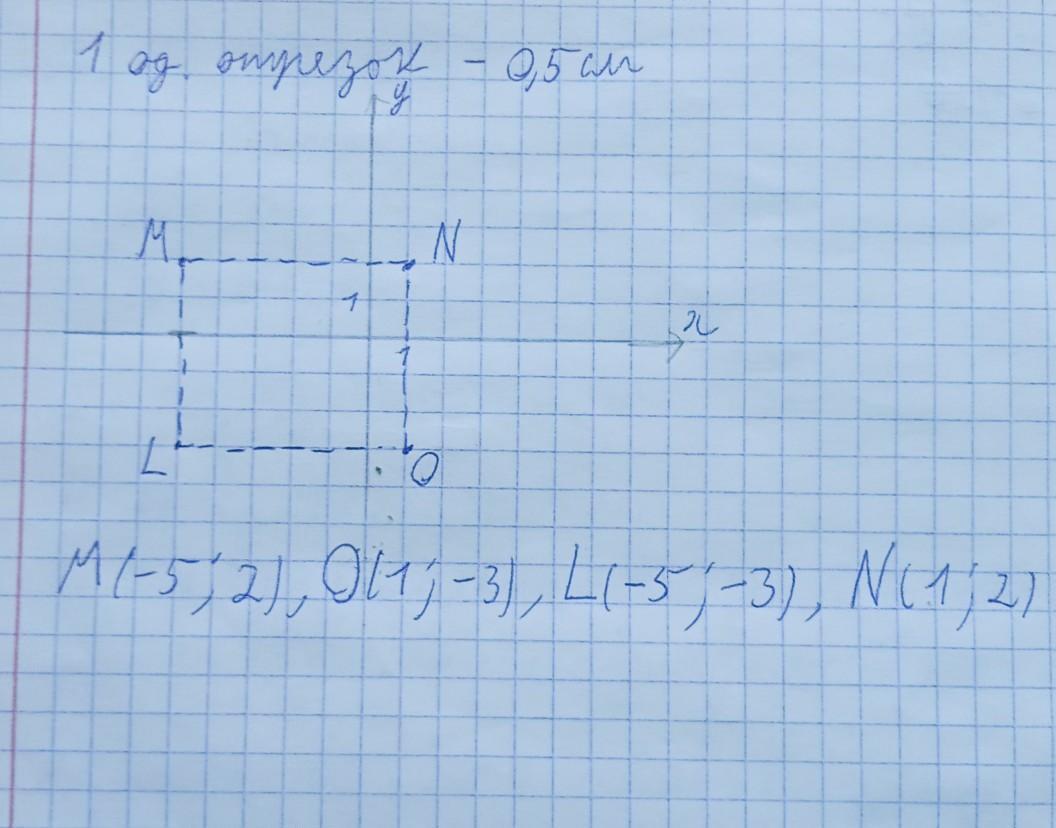 1 ед. отрезок - 0,5 см
y
M
N
1
x
1
L
O
M(-5; 2), O(1; -3), L(-5; -3), N(1; 2)